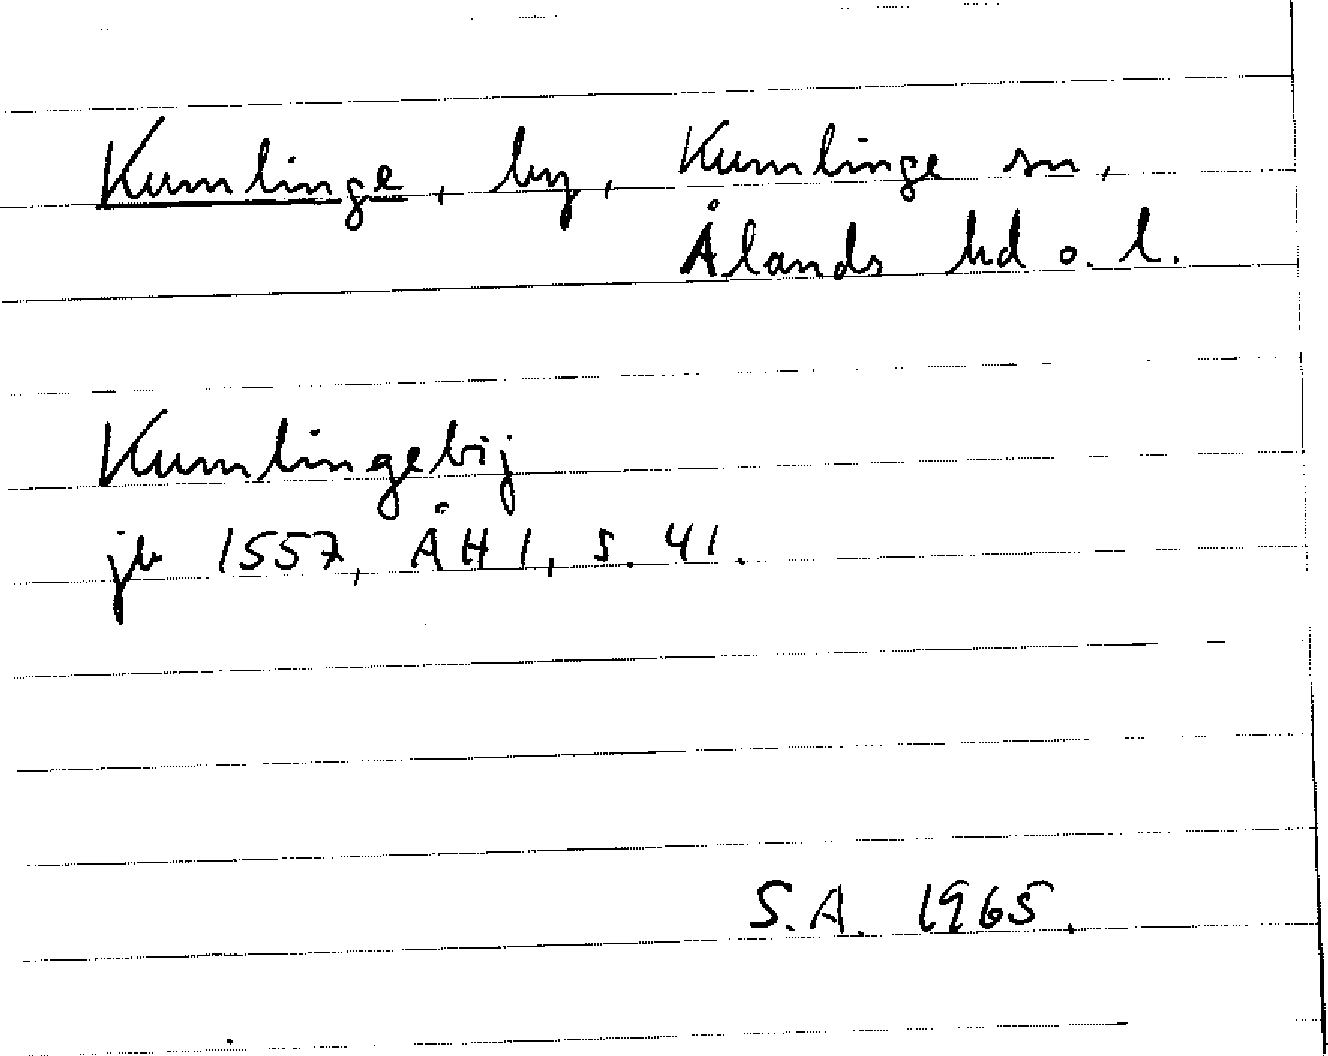 Kumlinge, by, Kumlinge sn,
Ålands hd o. l.
Kumlingebij
jb 1557, ÅH 1, s. 41.
S.A. 1965.